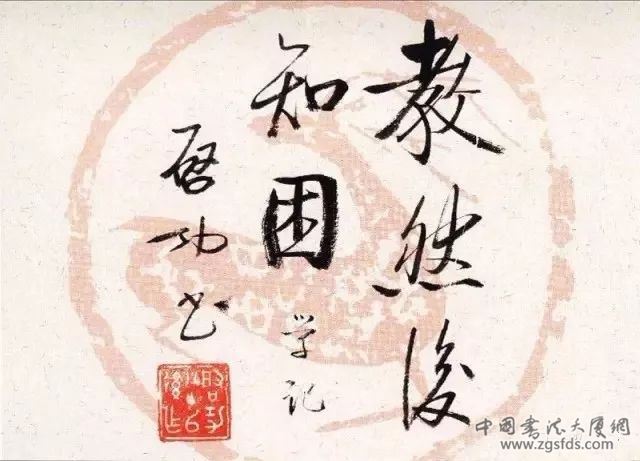 教然後
知困 学记
启功书
中国书法大厦网
www.zgsfds.com